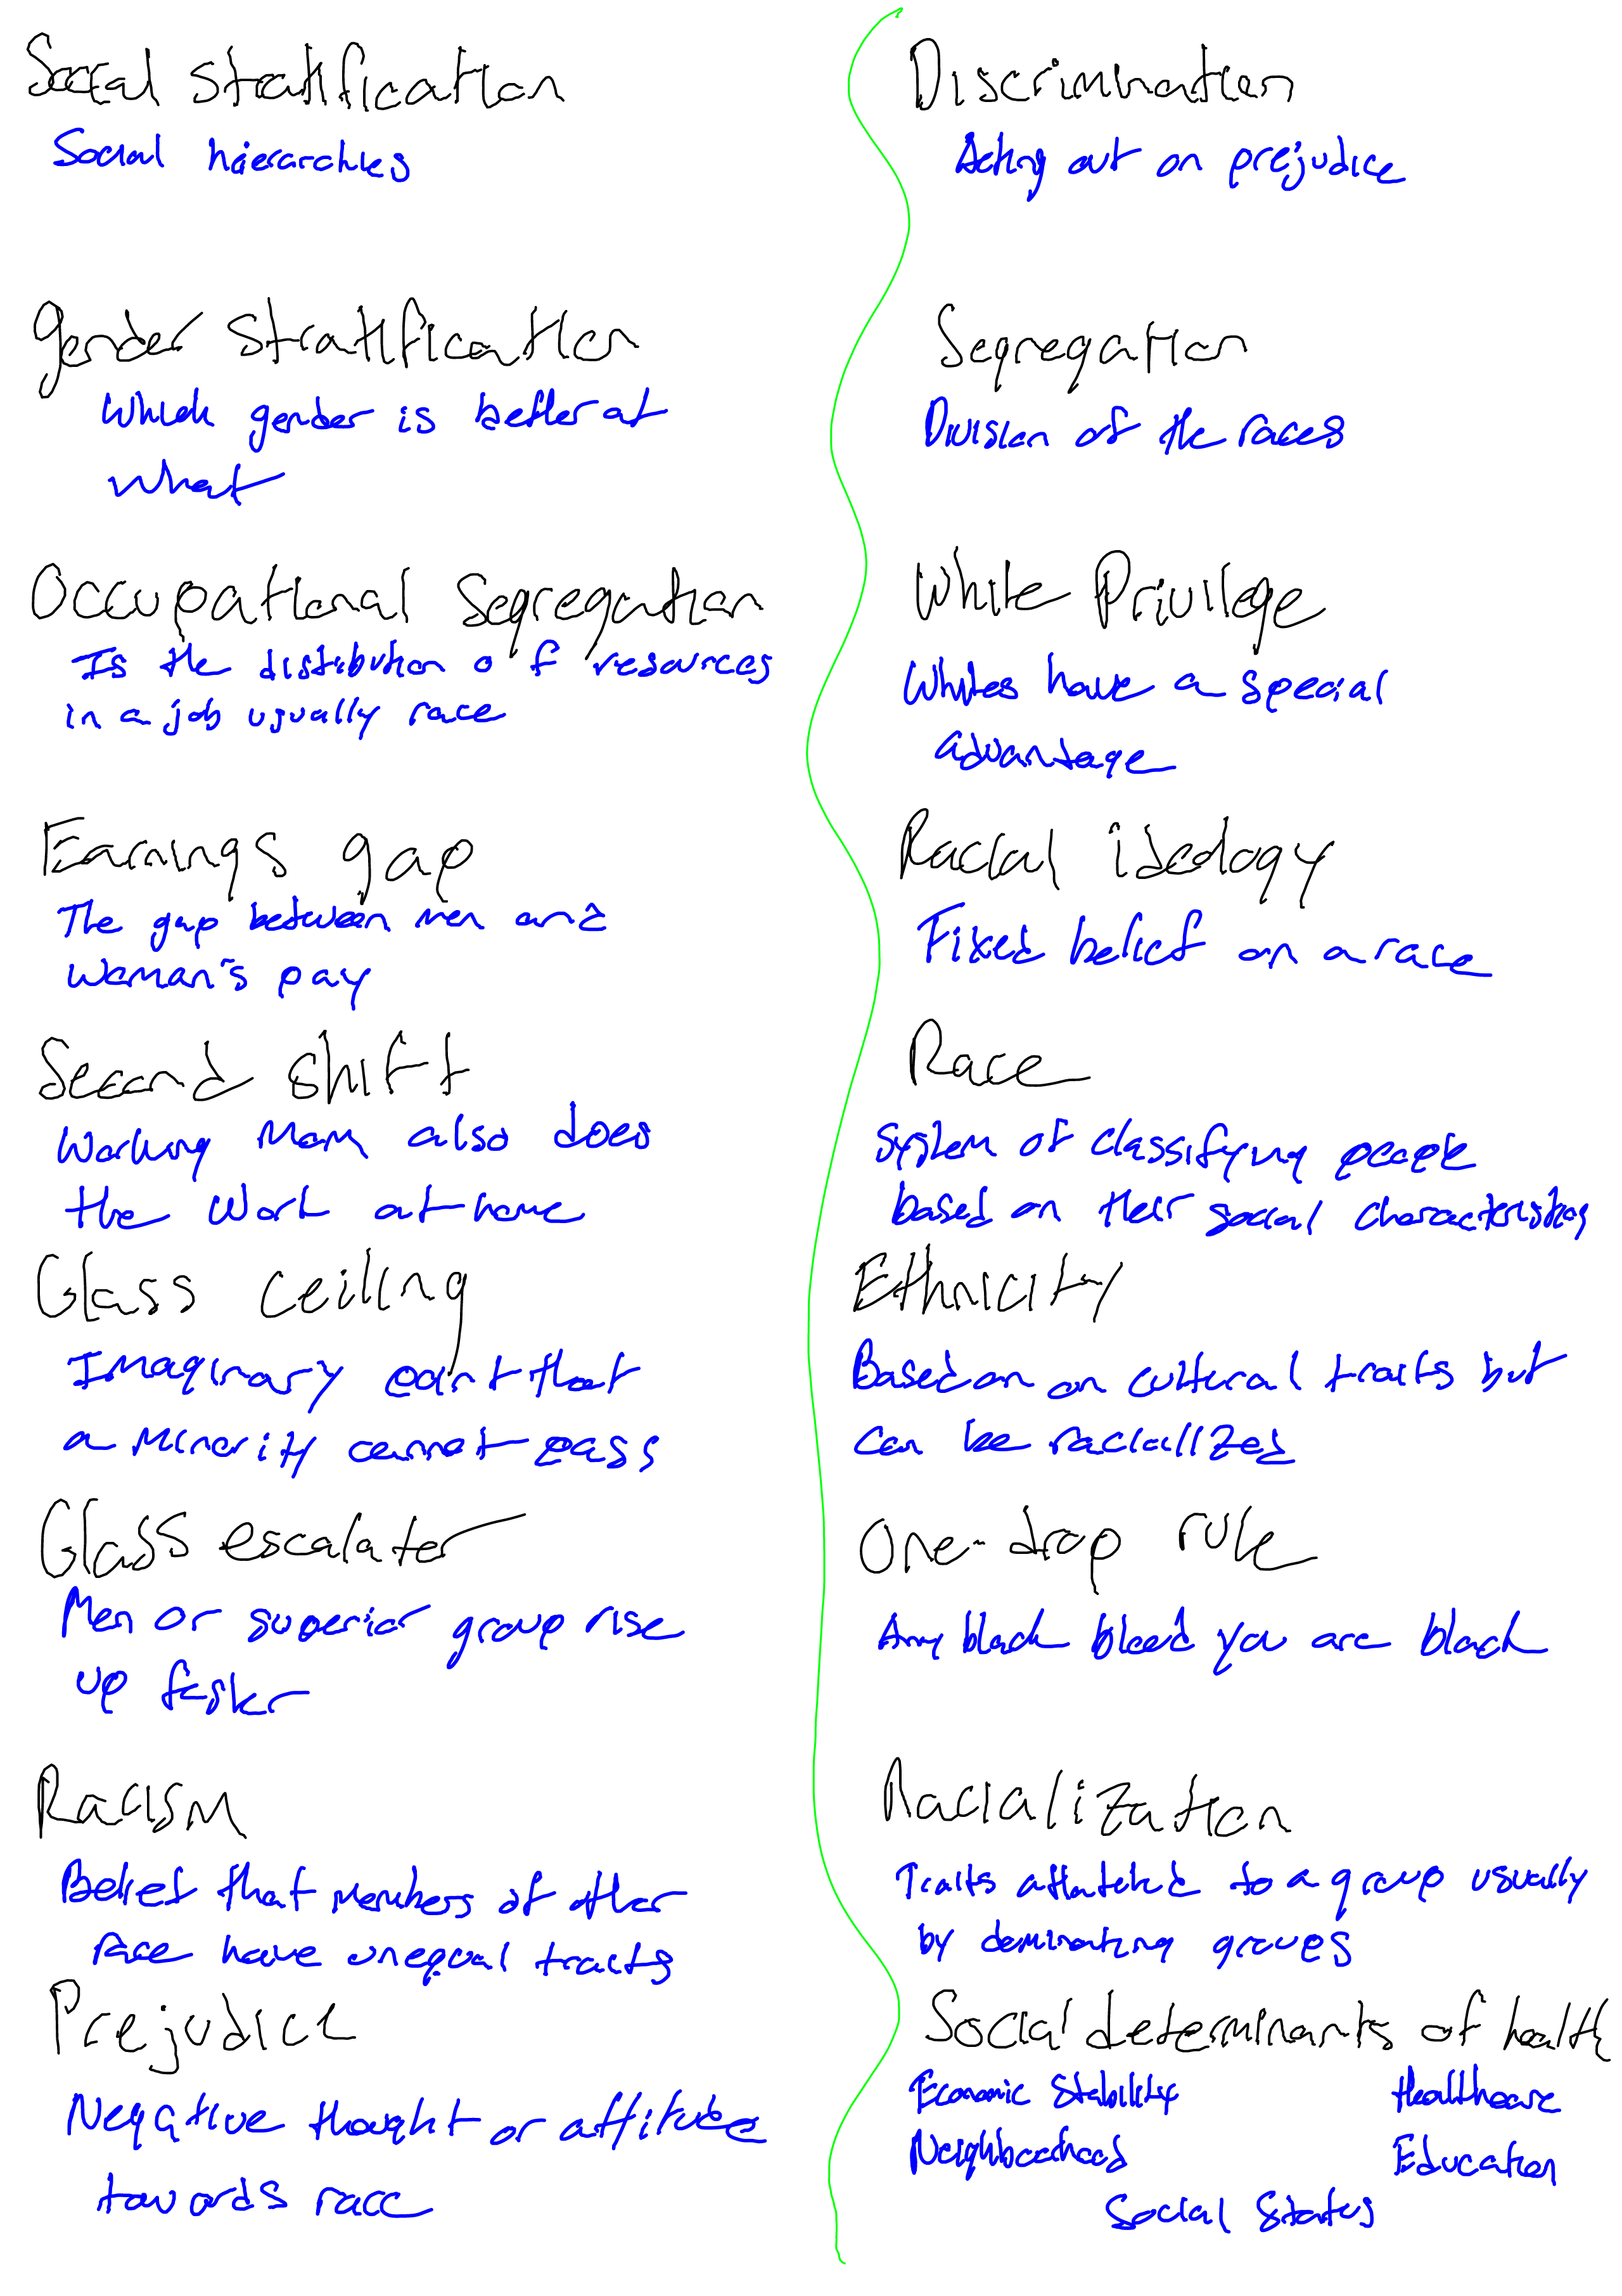 Social stratification
Social haierarchies
gender stratification
Which gender is better at
what
Occupational Segregation
Is the distribution of resources
in a job usually race
Earnings gap
The gap between men and
woman's pay
Second shift
Working Mom also does
the work at home
Glass ceiling
Imaginary point that
a minority cannot pass
Glass escalator
Men or superior group rise
up faster
Racism
Belief that members of other
race have unequal traits
Prejudice
Negative thought or attitude
towards race
Discrimination
Acting out on prejudice
Segregation
Division of the races
White Privilege
Whites have a special
advantage
Racial ideology
Fixed belief on a race
Race
System of classifying people
based on their social characteristics
Ethnicity
Based on on cultural traits but
can be racialized
One-drop rule
Any black blood you are black
Racialization
Traits attatched to a group usually
by dominating groups
Social determinants of health
Economic Stability Healthcare
Neighboorhood Education
Social Status